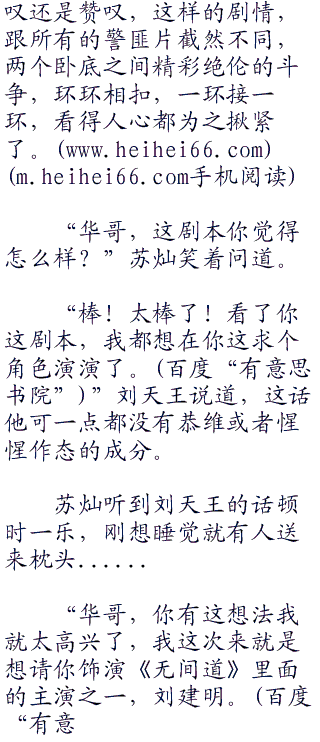 叹还是赞叹，这样的剧情，
跟所有的警匪片截然不同，
两个卧底之间精彩绝伦的斗
争，环环相扣，一环接一
环，看得人心都为之揪紧
了。(www.heihei66.com)
(m.heihei66.com手机阅读)
“华哥，这剧本你觉得
怎么样？”苏灿笑着问道。
“棒！太棒了！看了你
这剧本，我都想在你这求个
角色演演了。(百度“有意思
书院”)”刘天王说道，这话
他可一点都没有恭维或者惺
惺作态的成分。
苏灿听到刘天王的话顿
时一乐，刚想睡觉就有人送
来枕头......
“华哥，你有这想法我
就太高兴了，我这次来就是
想请你饰演《无间道》里面
的主演之一，刘建明。(百度
“有意